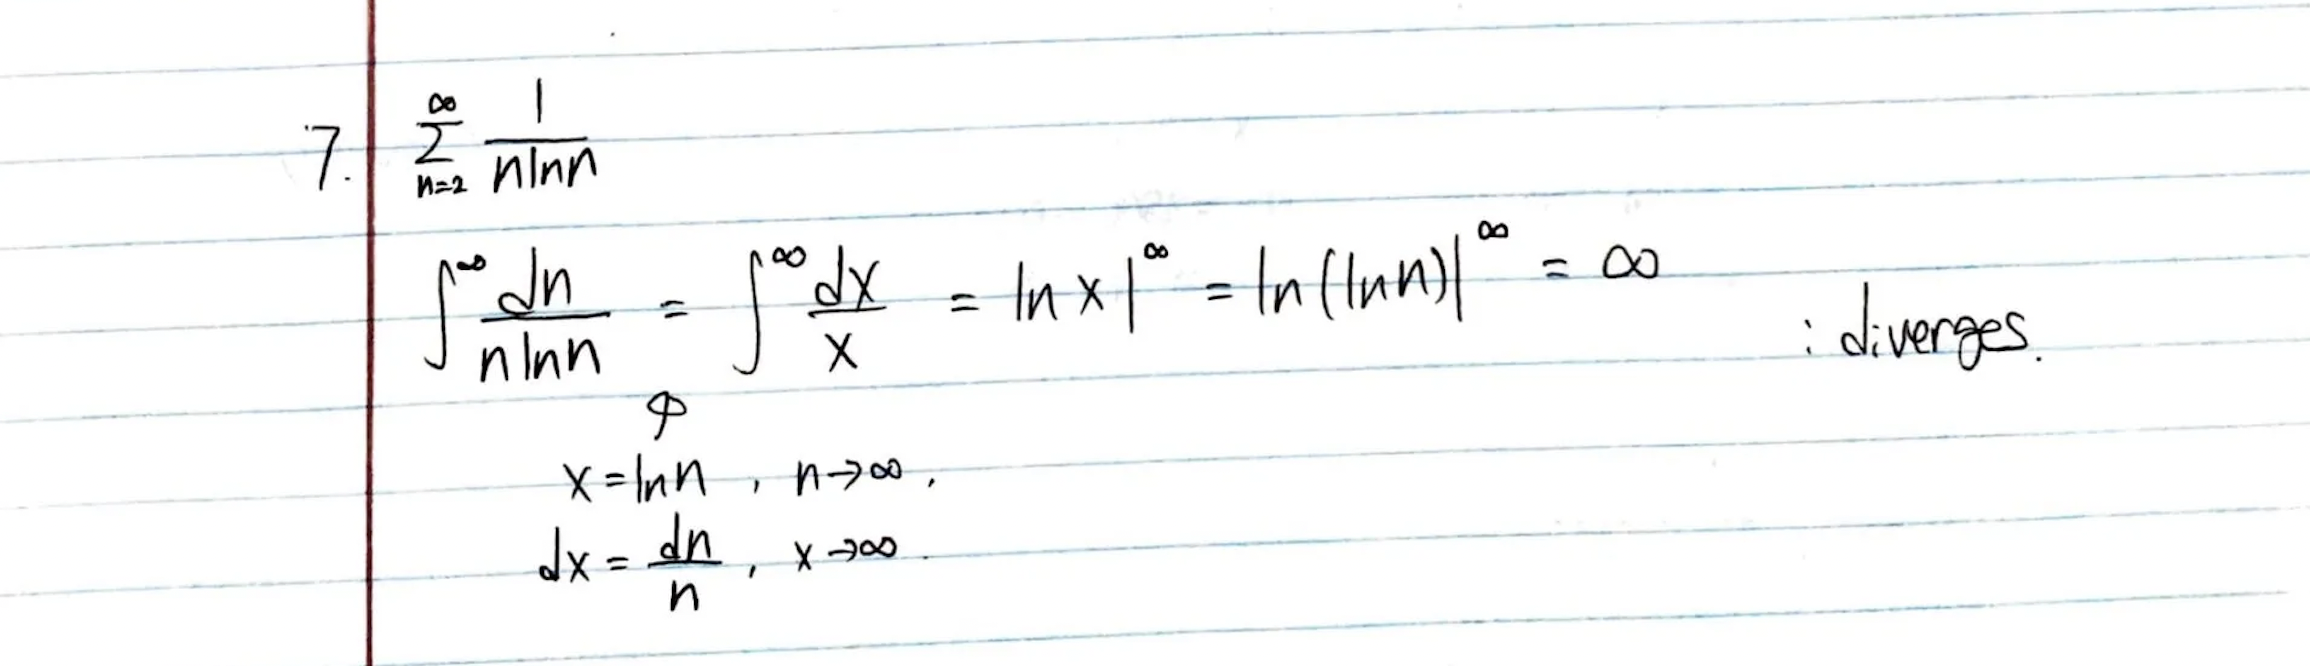 7. ∞ Σ n=2 1/(n ln n)
∫^∞ dn/(n ln n) = ∫^∞ dx/x = ln x |^∞ = ln (ln n) |^∞ = ∞ : diverges.
x = ln n , n→∞ ,
dx = dn/n , x→∞ .